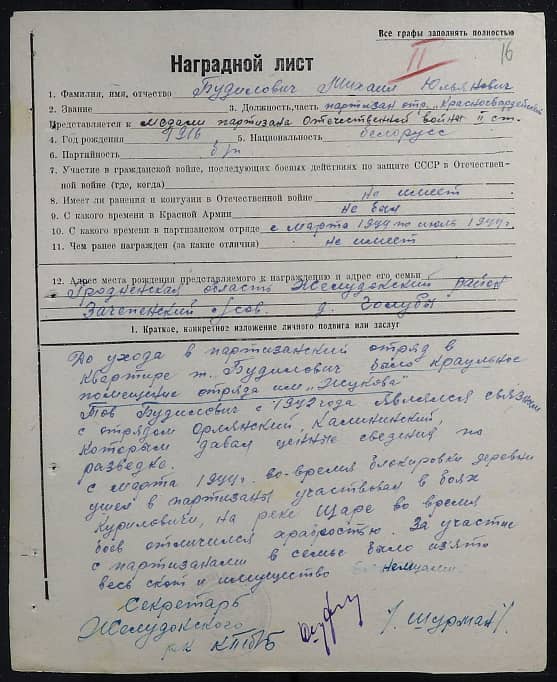 Все графы заполнять полностью
II
16
Наградной лист
1. Фамилия, имя, отчество Будилович Михаил Юльянович
2. Звание 3. Должность, часть партизан отр. „Красногвардейский
Представляется к медали партизана Отечественной войны II ст.
4. Год рождения 1916 5. Национальность белорусс
6. Партийность б/п
7. Участие в гражданской войне, последующих боевых действиях по защите СССР в Отечествен-
ной войне (где, когда)
8. Имеет ли ранения и контузии в Отечественной войне не имеет
9. С какого времени в Красной Армии не был
10. С какого времени в партизанском отряде с марта 1944 по июль 1944 г.
11. Чем ранее награжден (за какие отличия) не имеет
12. Адрес места рождения представляемого к награждению и адрес его семьи
Гродненская область Желудокский район
Зачепенский с/сов. д. Голубы
1. Краткое, конкретное изложение личного подвига или заслуг
До ухода в партизанский отряд в
квартире т. Будилович было краульное
помещение отряда им „Жукова"
Тов Будилович с 1942 года являлся связным
с отрядом Орлянский, Калининский
которым давал ценные сведения по
разведке.
с марта 1944 г. во-время блокировки деревни
ушел в партизаны участвовал в боях
Куриловичи, на реке Щаре во время
боев отличился храбростью. За участие
с партизанами в семье было изъято
весь скот и имущество немцами.
Секретарь
Желудокского
рк КП(б)Б
/Шурман/.